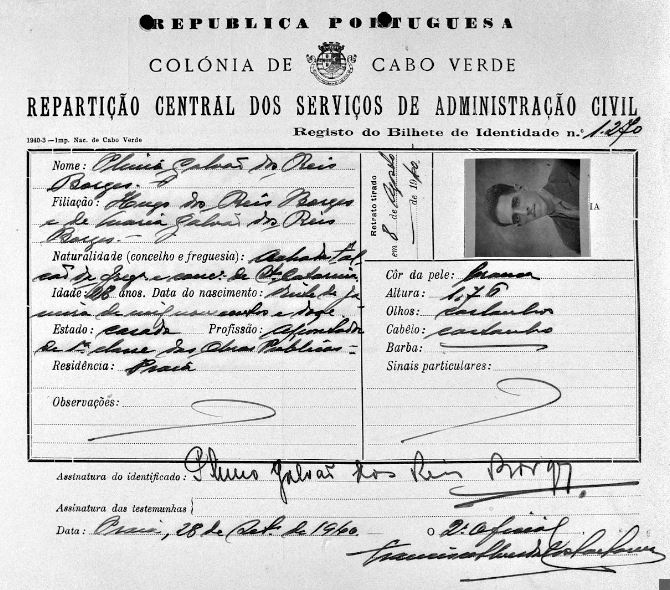 REPUBLICA PORTUGUESA
COLÓNIA DE CABO VERDE
REPARTIÇÃO CENTRAL DOS SERVIÇOS DE ADMINISTRAÇÃO CIVIL
1940-3—Imp. Nac. de Cabo Verde
Registo do Bilhete de Identidade n.º 1.270
Nome: Plinio Galvão dos Reis
Borges.
Filiação: Hugo dos Reis Borges
e de Maria Galvão dos Reis
Borges.—
Naturalidade (concelho e freguesia): Achada Fal
cão de freg. e conc. de Sta Catarina
Idade: 48 anos. Data do nascimento: Vinte de Ja
neiro de mil novecentos e doze
Estado: casado Profissão: Aferidor
de 1ª classe das Obras Públicas—
Residência: Praia
Observações:
Retrato tirado
em 8 de Agosto
de 1960.
Côr da pele: branca
Altura: 1,76
Olhos: castanhos
Cabêlo: castanho
Barba:
Sinais particulares:
Assinatura do identificado: Plinio Galvão dos Reis Borges.
Assinatura das testemunhas
Data: Praia, 28 de Set. de 1960.
O 2º Oficial
Francisco